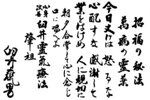 招福の秘法
萬病の霊薬
今日丈けは怒るな
心配すな感謝して
業をはげめ人に親切に
朝夕合掌して心に念じ
心身改善 臼井靈氣療法
肇祖
臼井甕男